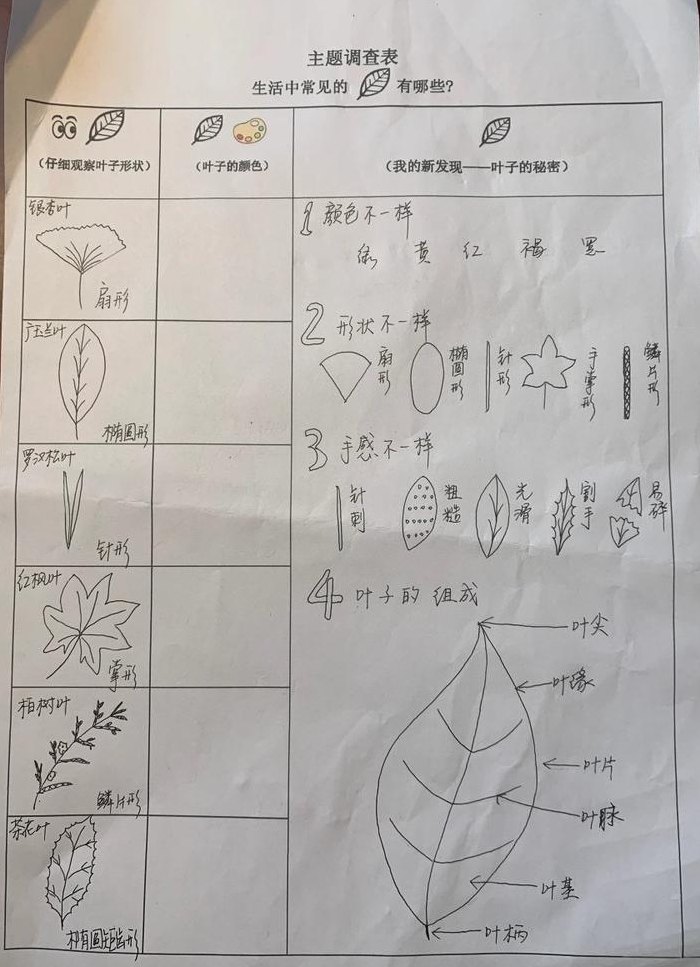 主题调查表
生活中常见的 有哪些?
（仔细观察叶子形状）
（叶子的颜色）
（我的新发现——叶子的秘密）
银杏叶
扇形
广玉兰叶
椭圆形
罗汉松叶
针形
红枫叶
掌形
柏树叶
鳞片形
茶花叶
椭圆锯齿形
1 颜色不一样
绿 黄 红 褐 黑
2 形状不一样
扇形
椭圆形
针形
手掌形
鳞片形
3 手感不一样
针刺
粗糙
光滑
割手
易碎
4 叶子的组成
叶尖
叶缘
叶片
叶脉
叶基
叶柄